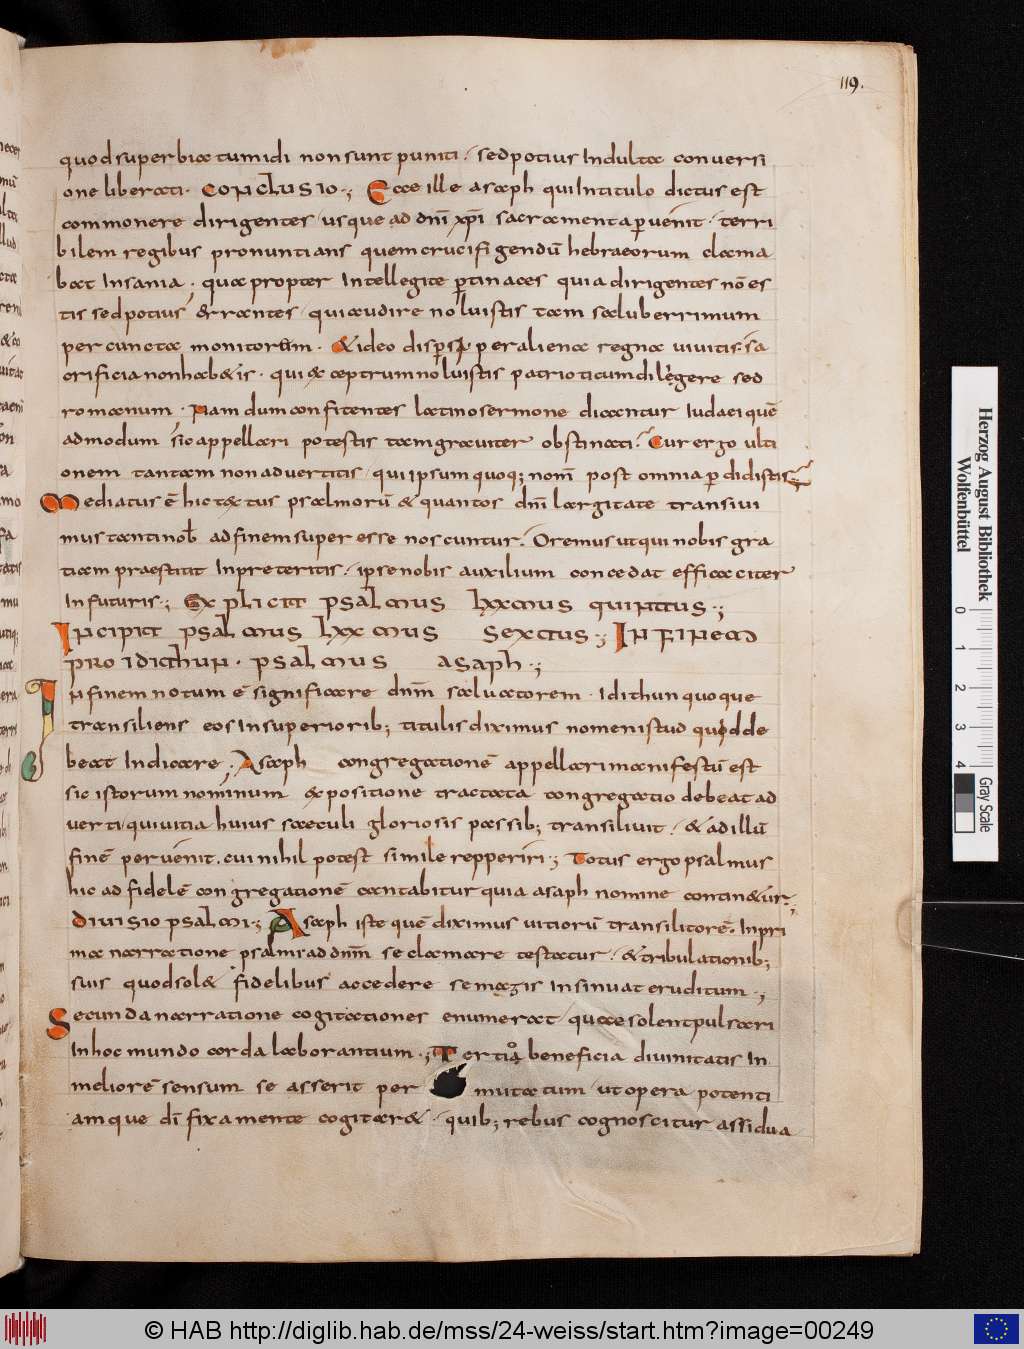 119.
quod superbiae tumidi non sunt puniti. sed potius Indulta conversi
one liberati. conclusio.; Ecce ille asaph qui Intitulo dictus est
commonere dirigentes usque ad dnī xp̄i sacramenta p̱venit. terri
bilem regibus pronuntians quem crucifigendū hebraeorum clama
bat Insania. quapropter Intellegite p̱tinaces quia dirigentes nō es
tis sed potius errantes. qui audire noluistis tam saluberrimum
per cuncta monitorem. & ideo disp̱si per aliena regna vivitis. sa
crificia non hab&is. qui & ceptrum noluistis patrioticum diligere sed
romanum. Nam dum confitentes latino sermone dicantur Iudaei quē
admodum sic appellari potestis tam graviter obstinati. Cur ergo ulti
onem tantam non advertitis qui ipsum quoq; nom̄ post omnia p̱didistis.;
Mediatus ē hic textus psalmorū & quantos dnī largitate transivi
mus tanti nob̄ ad finem superesse noscuntur. Oremus ut qui nobis gra
tiam praestitit In preteritis. ipse nobis auxilium concedat efficaciter
In futuris.; Explicit psalmus lxxmus quintus.;
Incipit psalmus lxxmus sextus.; In finem
pro idithun. psalmus asaph.;
In finem notum ē significare dnm̄ salvatorem. Idithun quoque
transiliens eos In superiorib; titulis diximus nomen istud quod de
beat Indicare. Asaph congregationē appellari manifestū est
sic istorum nominum expositione tractata congregatio debeat ad
verti qui vitia huius saeculi gloriosis passib; transilivit. & ad illū
finē pervenit. cui nihil potest simile repperiri.; Totus ergo psalmus
hic ad fidelē congregationē cantabitur quia asaph nomine contin&ur.;
Divisio psalmi.; Asaph iste quē diximus vitiorū transilitorē. In pri
ma narratione psalmi ad dnm̄ se clamare testatus. & tribulationib;
suis quod sol& fidelibus accedere se magis Insinuat eruditum.;
Secunda narratione cogitationes enumerat quae solent pulsari
In hoc mundo corda laborantium.; Tertia beneficia divinitatis In
meliorē sensum se asserit per mutatum ut opera potenti
amque dī fixa mente cogitar&. quib; rebus cognoscitur assidua
Herzog August Bibliothek
Wolfenbüttel
0 1 2 3 4
Gray Scale
© HAB http://diglib.hab.de/mss/24-weiss/start.htm?image=00249